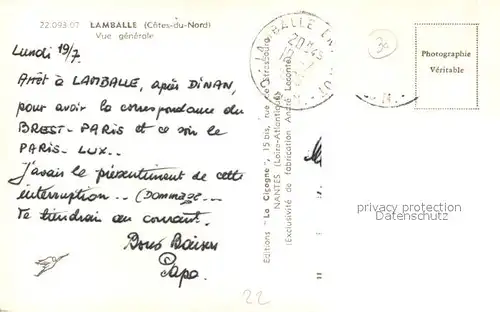 22.093.07 LAMBALLE (Côtes-du-Nord)
Vue générale
Lundi 19/7
Arrêt à LAMBALLE, après DINAN,
pour avoir la correspondance du
BREST-PARIS et ce soir le
PARIS-LUX..
J'avais le pressentiment de cette
interruption.. (Dommage...
Te tiendrai au courant.
Bons Baisers
Papa.
22
Editions "La Cigogne", 15 bis, rue de Strasbourg
NANTES (Loire-Atlantique)
(Exclusivité de fabrication André Leconte)
LAMBALLE
20H45
38
Photographie
Véritable
privacy protection
Datenschutz